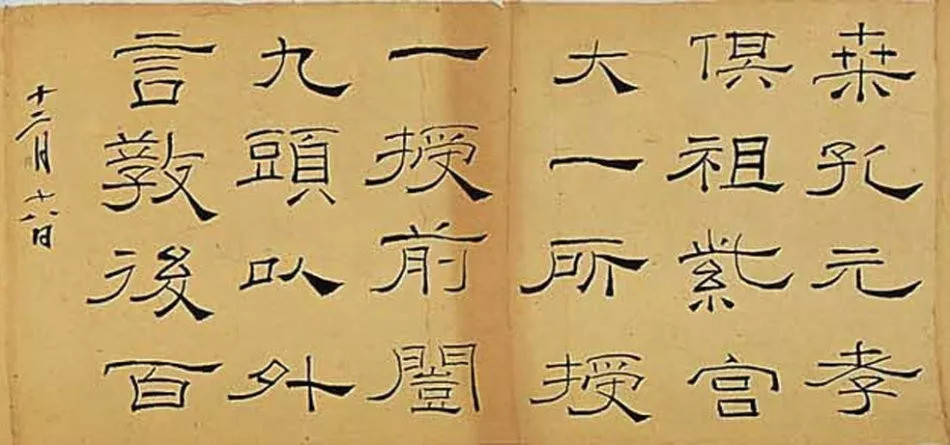 桒孔元孝
俱祖紫宮
大一所授
一授前闓
九頭以外
言教後百
十二月十八日